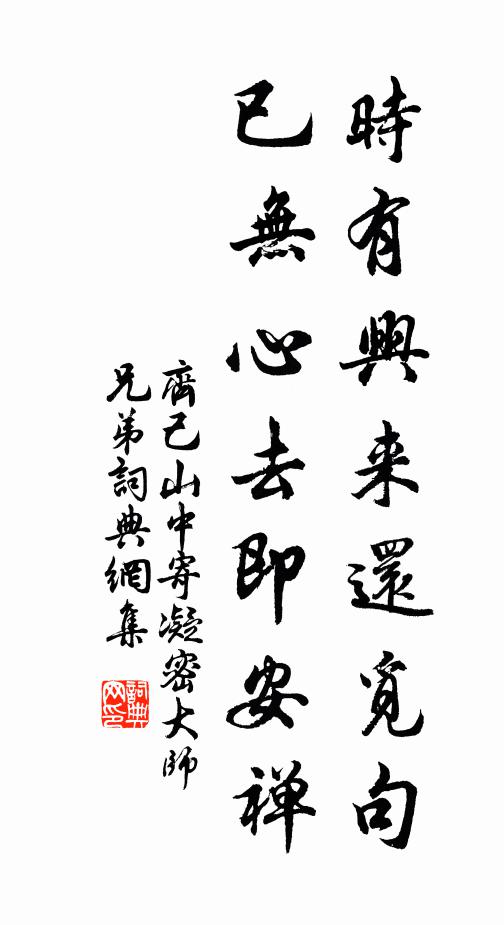 時有興来還覓句
已無心去即安禅
齊己山中寄凝密大師
兄弟詞典網集
詞典